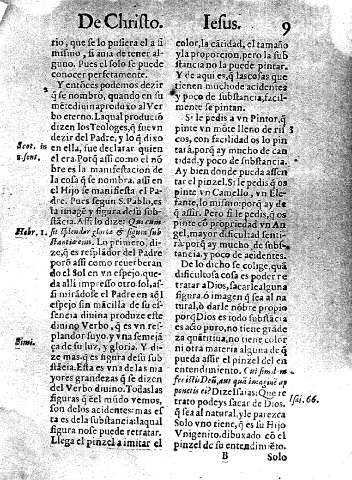 De Christo. Iesus. 9
rio, que se lo pusiera el a si
mismo, si auia de tener al-
guno. Pues el solo se puede
conocer perfetamente.
Y entõces podemos dezir
q̃ se nombrò, quando en su
mẽte diuina produxo al Ver
bo eterno. La qual produciõ
dizen los Teologos, q̃ fue vn
dezir del Padre, y lo q̃ dixo
en ella, fue declarar quien
el era. Porq̃ assi como el nõ
bre es la manifestacion de
la cosa q̃ se nombra, assi en
el Hijo se manifiesta el Pa-
dre. Pues segun S. Pablo, es
la imagẽ y figura de su sub-
stãcia. Assi lo dize: Qui cum
sit splendor gloriæ & figura sub
stantiæ eius. Lo primero, di-
ze, q̃ es resplãdor del Padre
porq̃ assi como reuerberan
do el Sol en vn espejo, que-
da alli impresso otro sol, as-
si mirãdose el Padre en aq̃l
espejo sin mãcilla de su es-
sencia diuina produze este
diuino Verbo, q̃ es vn res-
plandor suyo, y vna semejã
ça de su luz, y gloria. Y di-
ze mas q̃ es figura de su sub
stãcia. Esta es vna de las ma
yores grandezas q̃ se dizen
del Verbo diuino. Todas las
figuras q̃ en el mũdo vemos,
son de los acidentes: mas es
ta es de la substancia: la qual
figura no se puede retratar.
Llega el pinzel a imitar el
Scot. in
1. sent.
Hebr. 1.
Simi.
color, la cãtidad, el tamaño
y la proporcion, pero la sub
stãcia no la puede pintar.
Y de aqui es, q̃ las cosas que
tienen mucho de acidentes
y poco de substancia, facil-
mente se pintan.
Si le pedis a vn Pintor, q̃
pinte vn mõte lleno de ris-
cos, con facilidad os lo pin
tarà, porq̃ ay mucho de can
tidad, y poco de substancia.
Ay bien donde pueda assen
tar el pinzel. Si le pedis q̃ os
pinte vn Camello, vn Ele-
fante, lo mismo: porq̃ ay de
q̃ assir. Pero si le pedis, q̃ os
pinte con propiedad vn An
gel, mayor dificultad senti-
rà: porq̃ ay mucho de subs-
tancia, y poco de acidentes.
De lo dicho se colige, quã
dificultosa cosa es poder re
tratar a Dios, sacarle alguna
figura, o imagen q̃ sea al na
tural, ò darle nõbre propio
porq̃ Dios es todo substãcia
es acto puro, no tiene grãde
za quãtitiua, no tiene color
ni otra materia alguna de q̃
pueda assir el pinzel del en
tendimiento. Cui similem
fecistis Deũ, aut quã imaginẽ ap
ponetis ei? Dize Isaias: Que re
trato podeys sacar de Dios,
q̃ sea al natural, y le parezca
Solo vno tiene, q̃ es su Hijo
Vnigenito, dibuxado cõ el
pinzel de su entendimiẽto.
Isai. 66.
B Solo